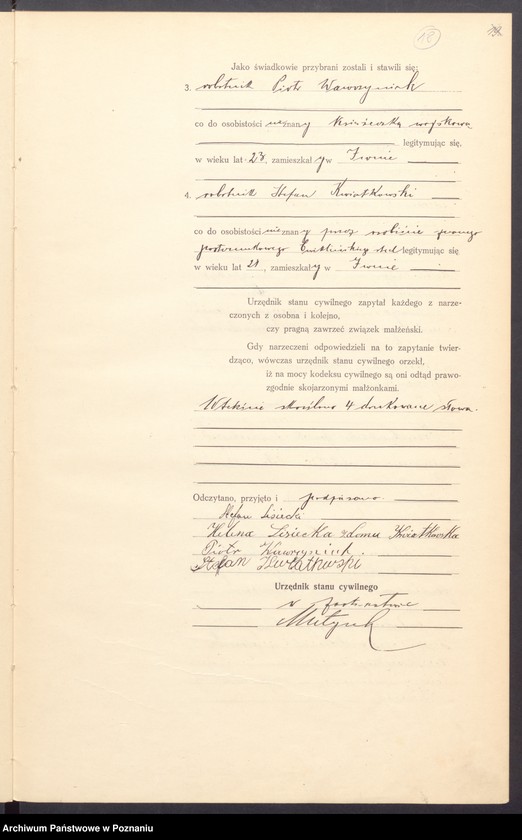 18
Jako świadkowie przybrani zostali i stawili się:
3. robotnik Piotr Wawrzyniak
co do osobistości nieznany książeczką wojskową
legitymując się,
w wieku lat 23, zamieszkały w Iwnie
4. robotnik Stefan Kwiatkowski
co do osobistości nieznany przez osobiście znanego
posterunkowego legitymując się
w wieku lat 21, zamieszkały w Iwnie
Urzędnik stanu cywilnego zapytał każdego z narze-
czonych z osobna i kolejno,
czy pragną zawrzeć związek małżeński.
Gdy narzeczeni odpowiedzieli na to zapytanie twier-
dząco, wówczas urzędnik stanu cywilnego orzekł,
iż na mocy kodeksu cywilnego są oni odtąd prawo-
zgodnie skojarzonymi małżonkami.
W tekście skreślono 4 drukowane słowa.
Odczytano, przyjęto i podpisano
Stefan Lisiecki
Helena Lisiecka z domu Kwiatkowska
Piotr Wawrzyniak.
Stefan Kwiatkowski
Urzędnik stanu cywilnego
w zastępstwie
Archiwum Państwowe w Poznaniu